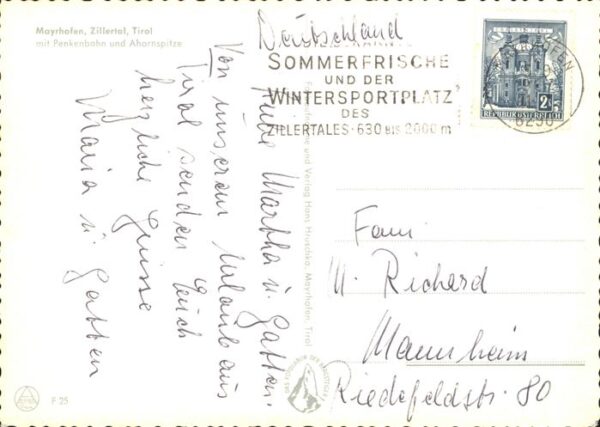 Mayrhofen, Zillertal, Tirol
mit Penkenbahn und Ahornspitze
Liebe Martha u. Gatten.
Von unserem Urlaub aus
Tirol senden Euch
herzliche Grüsse
Maria u. Gatten
F 25
Hans Hruschka, Mayrhofen, Tirol
Deutschland
SOMMERFRISCHE
UND DER
WINTERSPORTPLATZ
DES
ZILLERTALES · 630 BIS 2000 m
2S
REPUBLIK ÖSTERREICH
6290
Fam.
M. Richard
Mannheim
Riedfeldstr. 80